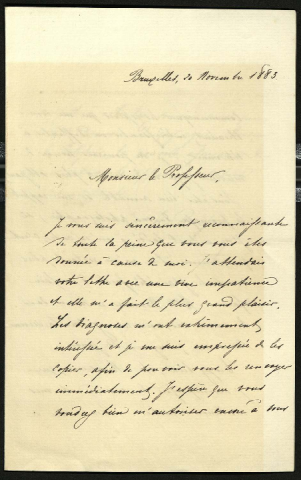 Bruxelles, 20 Novembre 1883
Monsieur le Professeur,
Je vous suis sincèrement reconnaissante
de toute la peine que vous vous êtes
donnée à cause de moi. J'attendais
votre lettre avec une vive impatience
et elle m'a fait le plus grand plaisir.
Les diagnoses m'ont extrêmement
intéressée et je me suis empressée de les
copier, afin de pouvoir vous les renvoyer
immédiatement. J'espère que vous
voudrez bien m'autoriser encore à vous